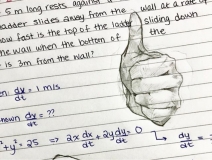 5 m long rests against a wall at a rate of
ladder slides away from the
how fast is the top of the ladder sliding down
the wall when the bottom of the
is 3m from the wall?
en: dx/dt = 1 m/s
nown dx/dt = ??
²+y²=25 ⇒ 2x dx/dt + 2y dy/dt = 0 ↳ dy/dt =